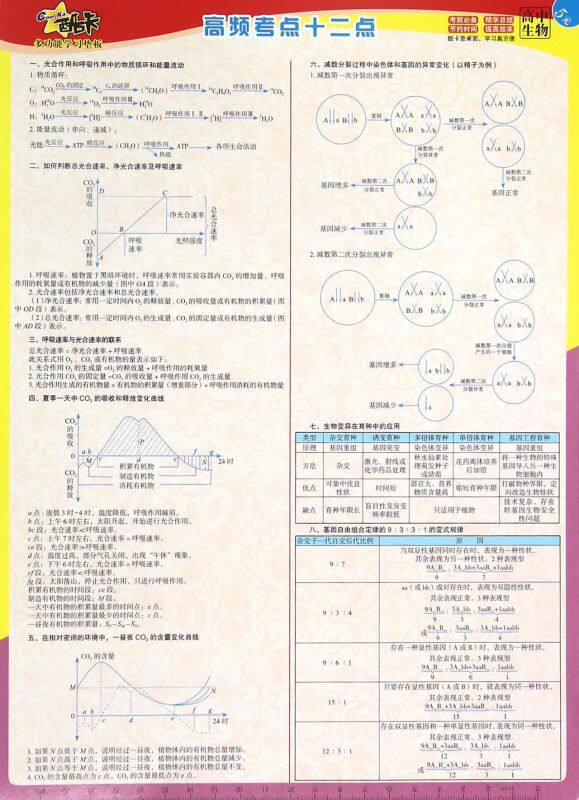 酷卡
多功能学习垫板
高频考点十二点
考前必备 精华总结
节约时间 提高效率
酷卡垫桌面,学习真方便
高中
生物
5元
一、光合作用和呼吸作用中的物质循环和能量流动
1. 物质循环:
2. 能量流动(单向、递减):
光能 光反应 ATP 暗反应 (CH₂O) 呼吸作用 ATP 各项生命活动
热能
二、如何判断总光合速率、净光合速率及呼吸速率
CO₂的吸收
D
C
净光合速率
总光合速率
O
B
呼吸速率
光照强度
CO₂的释放
A
1. 呼吸速率:植物置于黑暗环境时,呼吸速率常用实验容器内 CO₂ 的增加量、呼吸
作用的耗氧量或有机物的减少量(图中 OA 段)表示。
2. 光合速率包括净光合速率和总光合速率。
(1)净光合速率:常用一定时间内 O₂ 的释放量、CO₂ 的吸收量或有机物的积累量(图
中 OD 段)表示。
(2)总光合速率:常用一定时间内 O₂ 的生成量、CO₂ 的固定量或有机物的生成量(图
中 AD 段)表示。
三、呼吸速率与光合速率的联系
总光合速率=净光合速率+呼吸速率
此关系式用 O₂、CO₂ 或有机物的量表示如下:
1. 光合作用 O₂ 的生成量=O₂ 的释放量+呼吸作用的耗氧量
2. 光合作用 CO₂ 的固定量=CO₂ 的吸收量+呼吸作用 CO₂ 的生成量
3. 光合作用生成的有机物量=有机物的积累量(增重部分)+呼吸作用消耗的有机物量
四、夏季一天中 CO₂ 的吸收和释放变化曲线
CO₂的吸收
CO₂的释放
积累有机物
制造有机物
消耗有机物
24时
a 点:凌晨3时~4时,温度降低,呼吸作用减弱。
b 点:上午6时左右,太阳升起,开始进行光合作用。
bc 段:光合速率<呼吸速率。
c 点:上午7时左右,光合速率=呼吸速率。
ce 段:光合速率>呼吸速率。
d 点:温度过高,部分气孔关闭,出现“午休”现象。
e 点:下午6时左右,光合速率=呼吸速率。
ef 段:光合速率<呼吸速率。
fg 段:太阳落山,停止光合作用,只进行呼吸作用。
积累有机物的时间段:ce 段。
制造有机物的时间段:bf 段。
一天中有机物的积累量最多的时间点:e 点。
一天中有机物的积累量最少的时间点:c 点。
一昼夜有机物的积累量:Sₚ-Sₘ-Sₙ。
五、在相对密闭的环境中,一昼夜 CO₂ 的含量变化曲线
CO₂ 的含量
M
N
O
a b c d e f g 24时
1. 如果 N 点低于 M 点,说明经过一昼夜,植物体内的有机物总量增加。
2. 如果 N 点高于 M 点,说明经过一昼夜,植物体内的有机物总量减少。
3. 如果 N 点等于 M 点,说明经过一昼夜,植物体内的有机物总量不变。
4. CO₂ 的含量最高点为 c 点,CO₂ 的含量最低点为 e 点。
六、减数分裂过程中染色体和基因的异常变化(以精子为例)
1. 减数第一次分裂出现异常
复制
减数第一次分裂异常
减数第一次分裂正常
减数第二次分裂正常
基因增多
减数第二次分裂正常
基因正常
减数第二次分裂正常
基因减少
2. 减数第二次分裂出现异常
复制
减数第一次分裂正常
减数第一次分裂
产生的一个细胞
基因增多
减数第二次分裂异常
基因减少
七、生物变异在育种中的应用
类型 杂交育种 诱变育种 多倍体育种 单倍体育种 基因工程育种
原理 基因重组 基因突变 染色体变异 染色体变异 基因重组
方法 杂交 激光、射线或化学药品处理 秋水仙素处理萌发种子或幼苗 花药离体培养后加倍 将一种生物的特殊基因导入另一种生物细胞内
优点 可集中优良性状 时间短 器官大、营养物质含量高 缩短育种年限 打破物种界限,定向改造生物性状
缺点 育种年限长 盲目性及突变频率较低 只适用于植物 技术复杂,存在转基因生物安全性问题
八、基因自由组合定律的9∶3∶3∶1的变式规律
杂交子一代自交后代比例 原因
9∶7 当双显性基因同时存在时,表现为一种性状,
其余表现为另一种性状。2种表现型
9A_B_ : 3A_bb+3aaB_+1aabb
9 7
9∶3∶4 aa(或 bb)成对存在时,表现为双隐性性状,
其余表现正常。3种表现型
9A_B_ : 3A_bb : 3aaB_+1aabb
9 3 4
或 9A_B_ : 3aaB_ : 3A_bb+1aabb
9 3 4
9∶6∶1 存在一种显性基因(A 或 B)时,表现为一种性状,
其余表现正常。3种表现型
9A_B_ : 3A_bb+3aaB_ : 1aabb
9 6 1
15∶1 只要存在显性基因(A 或 B)时,就表现为同一种性状,
其余表现正常。2种表现型
9A_B_+3A_bb+3aaB_ : 1aabb
15 1
12∶3∶1 存在双显性基因和一种单显性基因时,表现为同一种性状,
其余表现正常。3种表现型
9A_B_+3aaB_ : 3A_bb : 1aabb
12 3 1
或 9A_B_+3A_bb : 3aaB_ : 1aabb
12 3 1